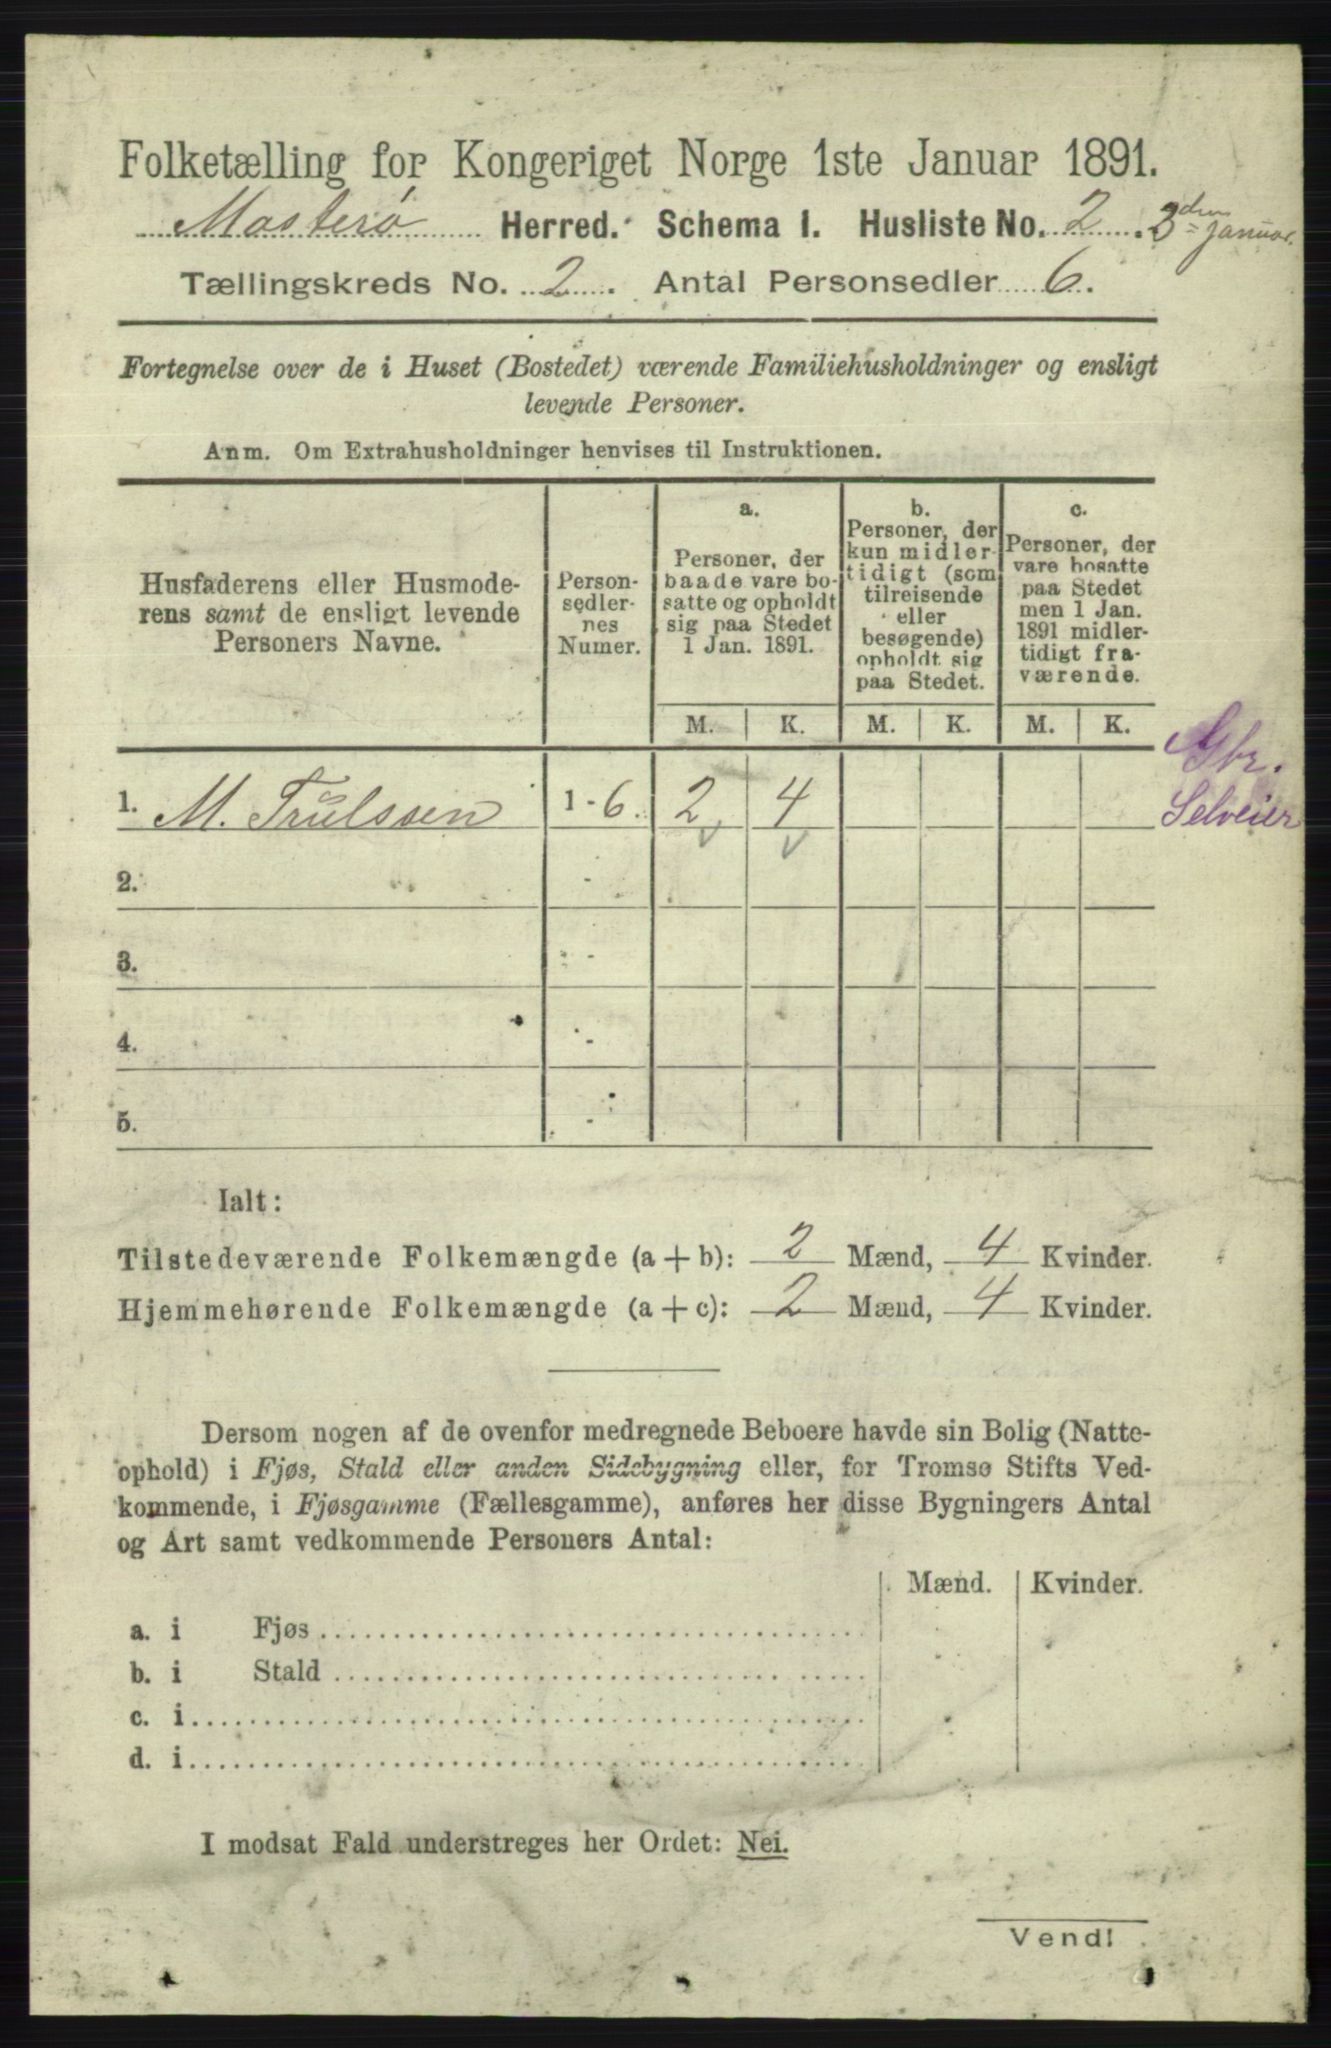 Folketælling for Kongeriget Norge 1ste Januar 1891.
Mosterø Herred. Schema I. Husliste No. 2. 3den Januar.
Tællingskreds No. 2. Antal Personsedler 6.
Fortegnelse over de i Huset (Bostedet) værende Familiehusholdninger og ensligt
levende Personer.
Anm. Om Extrahusholdninger henvises til Instruktionen.
Husfaderens eller Husmode-
rens samt de ensligt levende
Personers Navne.
Person-
sedler-
nes
Numer.
a.
Personer, der
baade vare bo-
satte og opholdt
sig paa Stedet
1 Jan. 1891.
b.
Personer, der
kun midler-
tidigt (som
tilreisende
eller
besøgende)
opholdt sig
paa Stedet.
c.
Personer, der
vare bosatte
paa Stedet
men 1 Jan.
1891 midler-
tidigt fra-
værende.
M. K. M. K. M. K.
1. M. Trulssen 1 - 6. 2 4
Gbr.
Selveier
2. -
3. -
4. -
5. -
Ialt:
Tilstedeværende Folkemængde (a + b): 2 Mænd, 4 Kvinder.
Hjemmehørende Folkemængde (a + c): 2 Mænd, 4 Kvinder.
Dersom nogen af de ovenfor medregnede Beboere havde sin Bolig (Natte-
ophold) i Fjøs, Stald eller anden Sidebygning eller, for Tromsø Stifts Ved-
kommende, i Fjøsgamme (Fællesgamme), anføres her disse Bygningers Antal
og Art samt vedkommende Personers Antal:
Mænd. Kvinder.
a. i Fjøs
b. i Stald
c. i
d. i
I modsat Fald understreges her Ordet: Nei.
Vend!